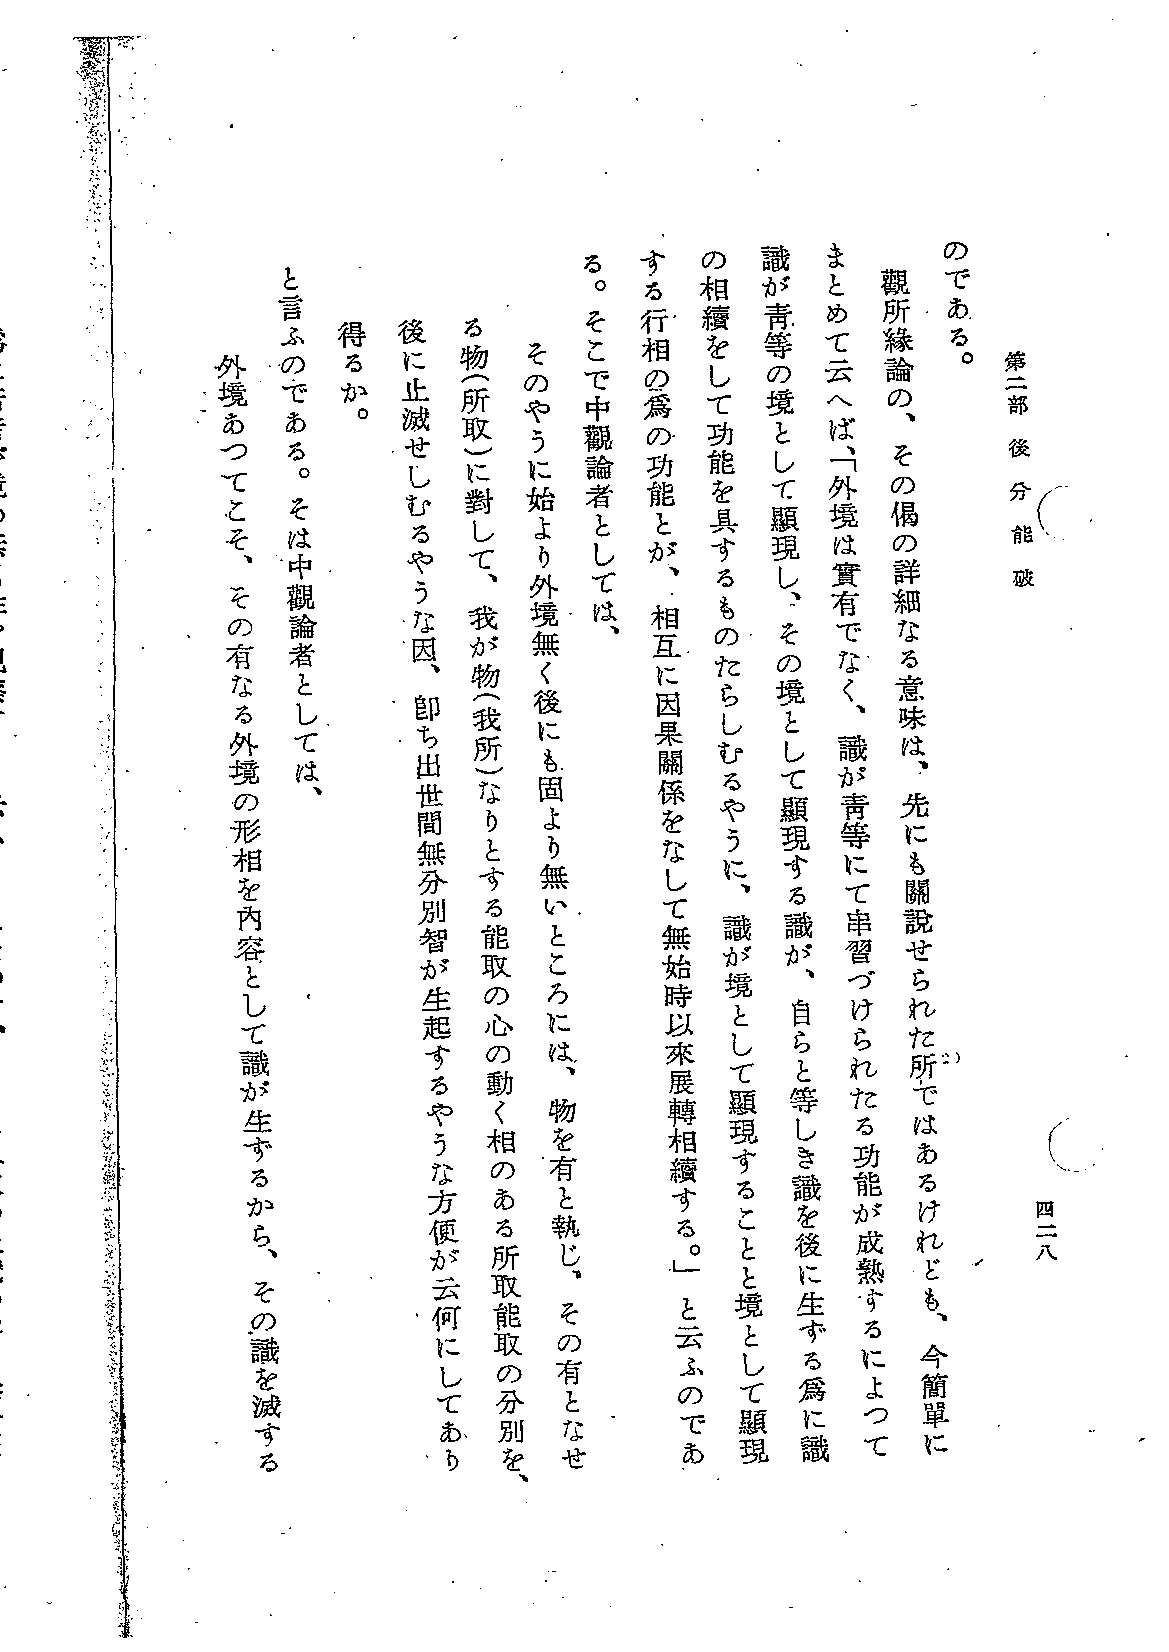 第二部 後分 能破
四二八
のである。
觀所緣論の、その偈の詳細なる意味は、先にも關說せられた所2)ではあるけれども、今簡單に
まとめて云へば、「外境は實有でなく、識が靑等にて串習づけられたる功能が成熟するによつて
識が靑等の境として顯現し、その境として顯現する識が、自らと等しき識を後に生ずる爲に識
の相續をして功能を具するものたらしむるやうに、識が境として顯現することと境として顯現
する行相の爲の功能とが、相互に因果關係をなして無始時以來展轉相續する。」と云ふのであ
る。そこで中觀論者としては、
そのやうに始より外境無く後にも固より無いところには、物を有と執じ、その有となせ
る物(所取)に對して、我が物(我所)なりとする能取の心の動く相のある所取能取の分別を、
後に止滅せしむるやうな因、卽ち出世間無分別智が生起するやうな方便が云何にしてあり
得るか。
と言ふのである。そは中觀論者としては、
外境あつてこそ、その有なる外境の形相を內容として識が生ずるから、その識を滅する